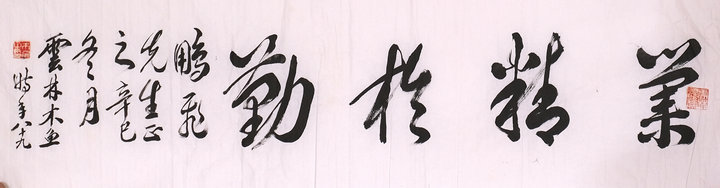 業精於勤
鵬飛
先生正
之辛巳
冬月
雲林木魚
時年八十九